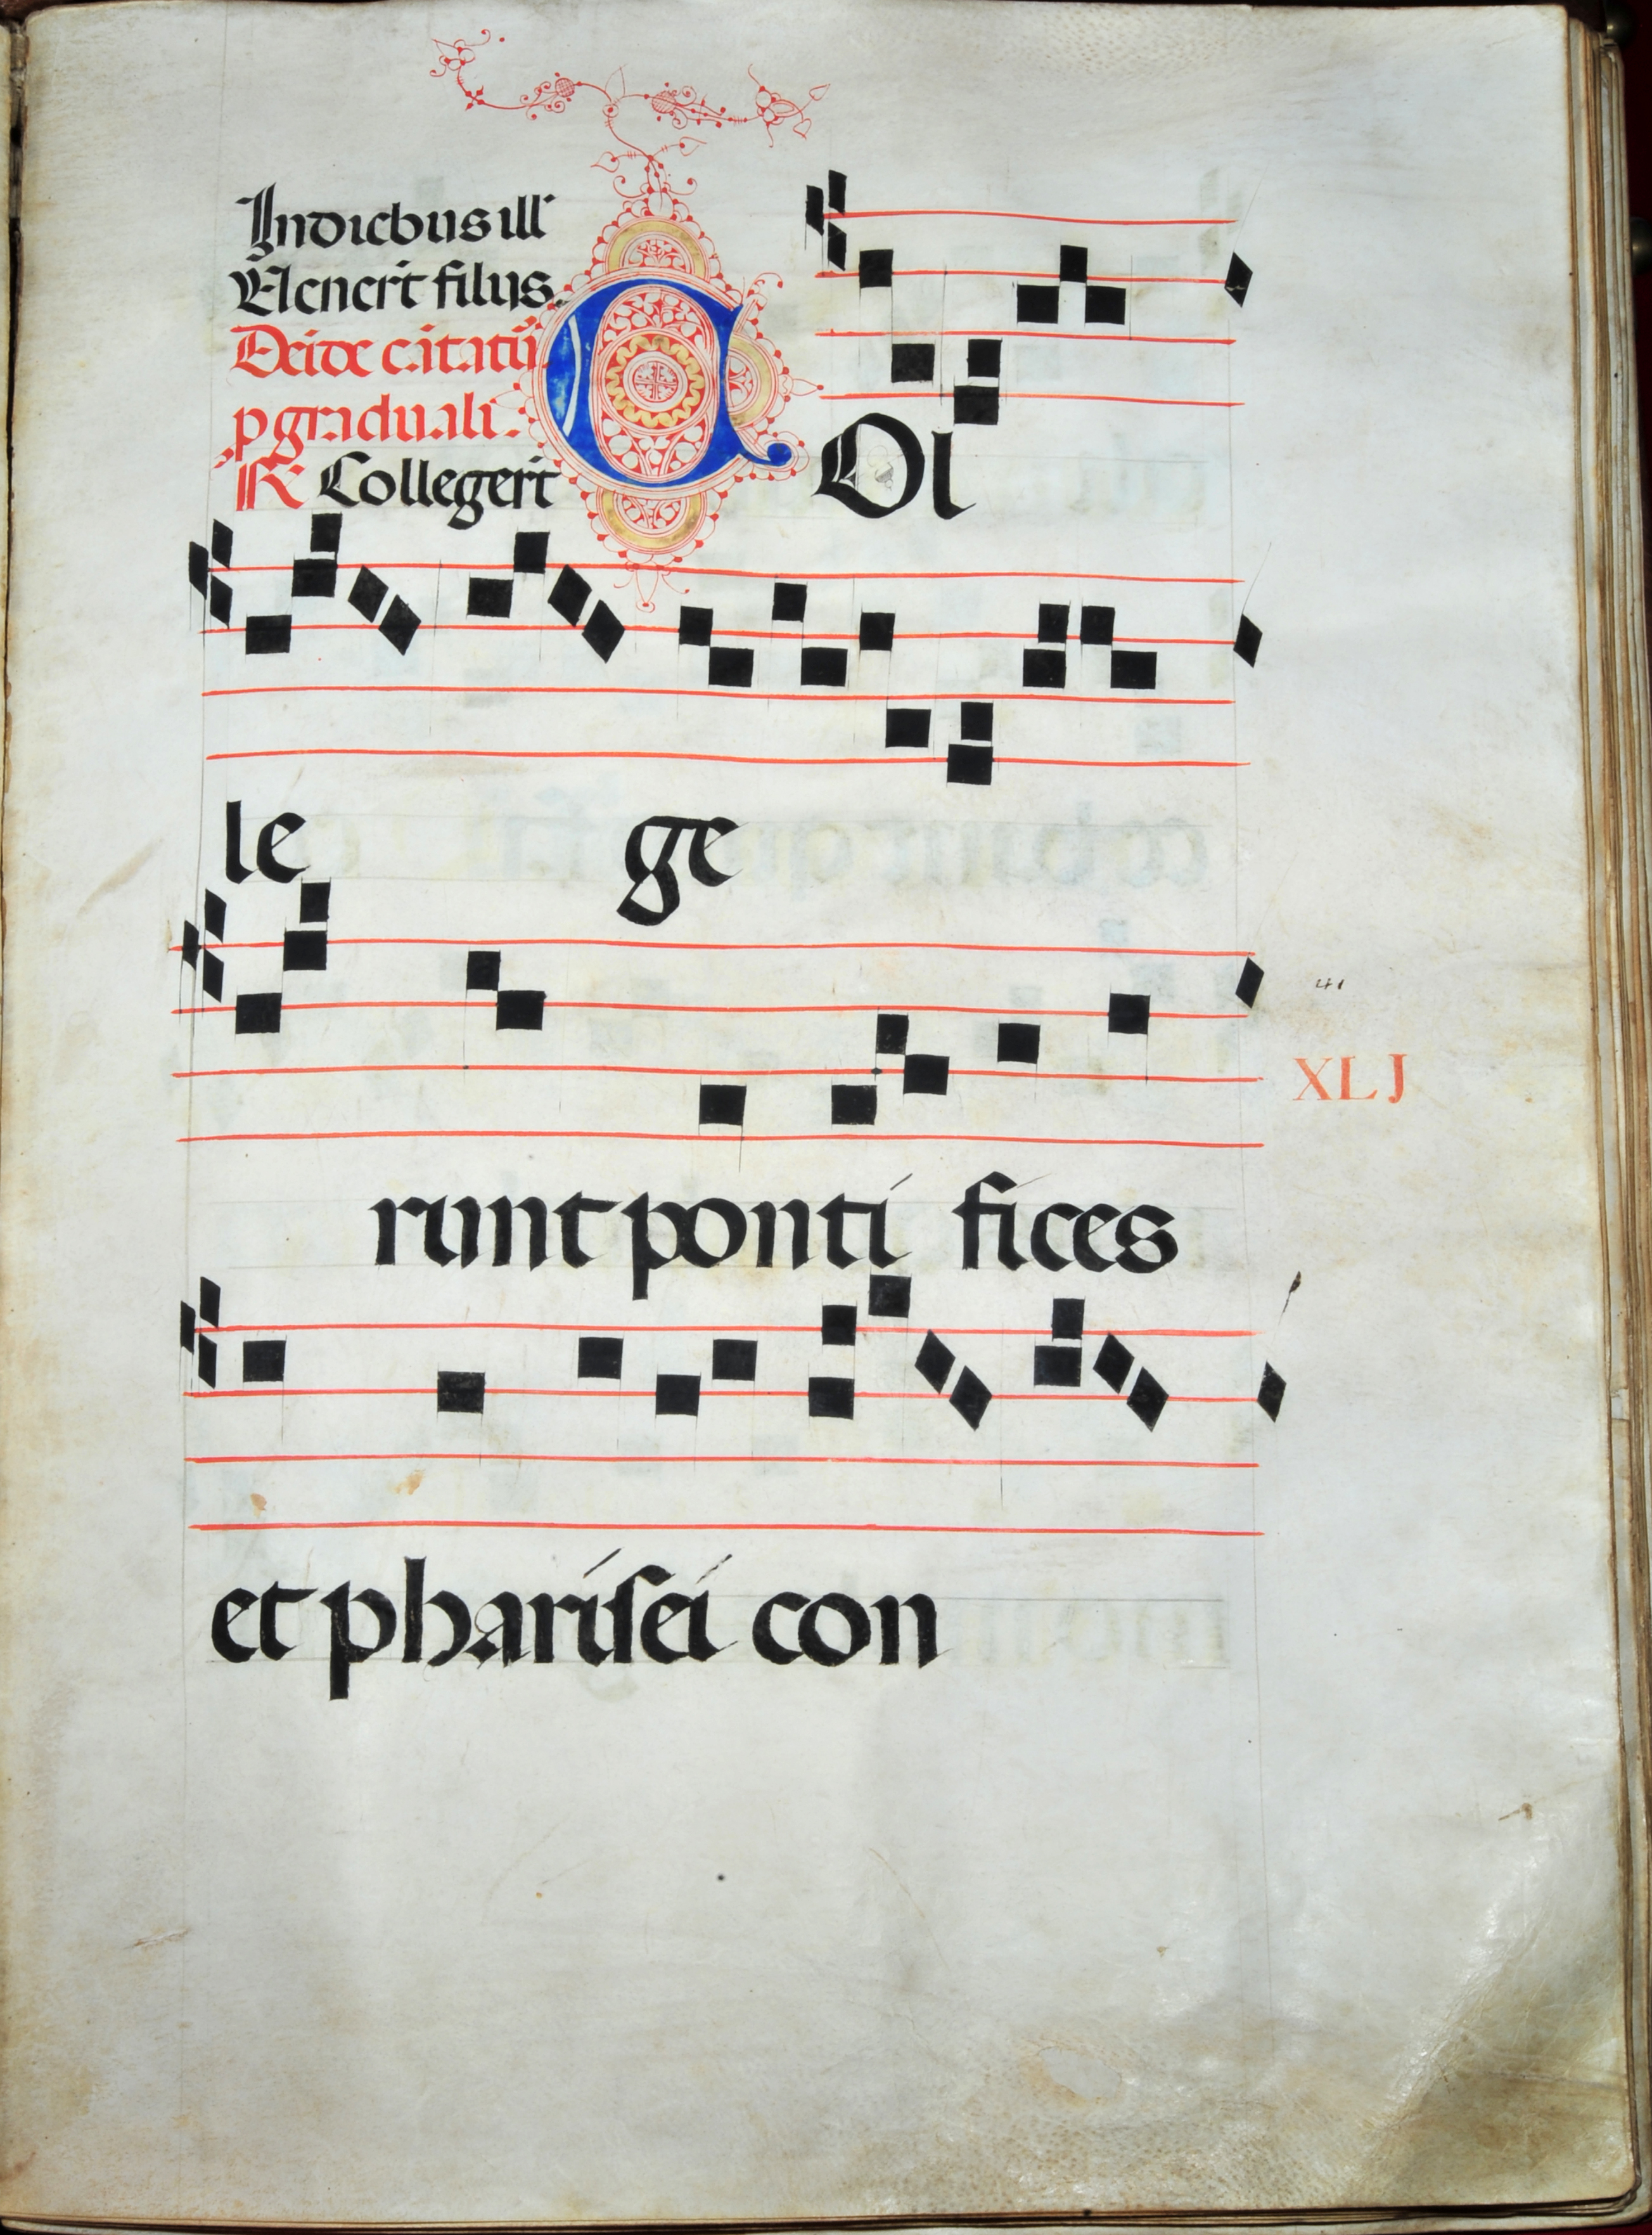 In diebus ill
Uenerit filius
Deide cātatū
p graduali.
R Collegert
C Ol
le ge
runt ponti fices
41
XLJ
et pharisei con